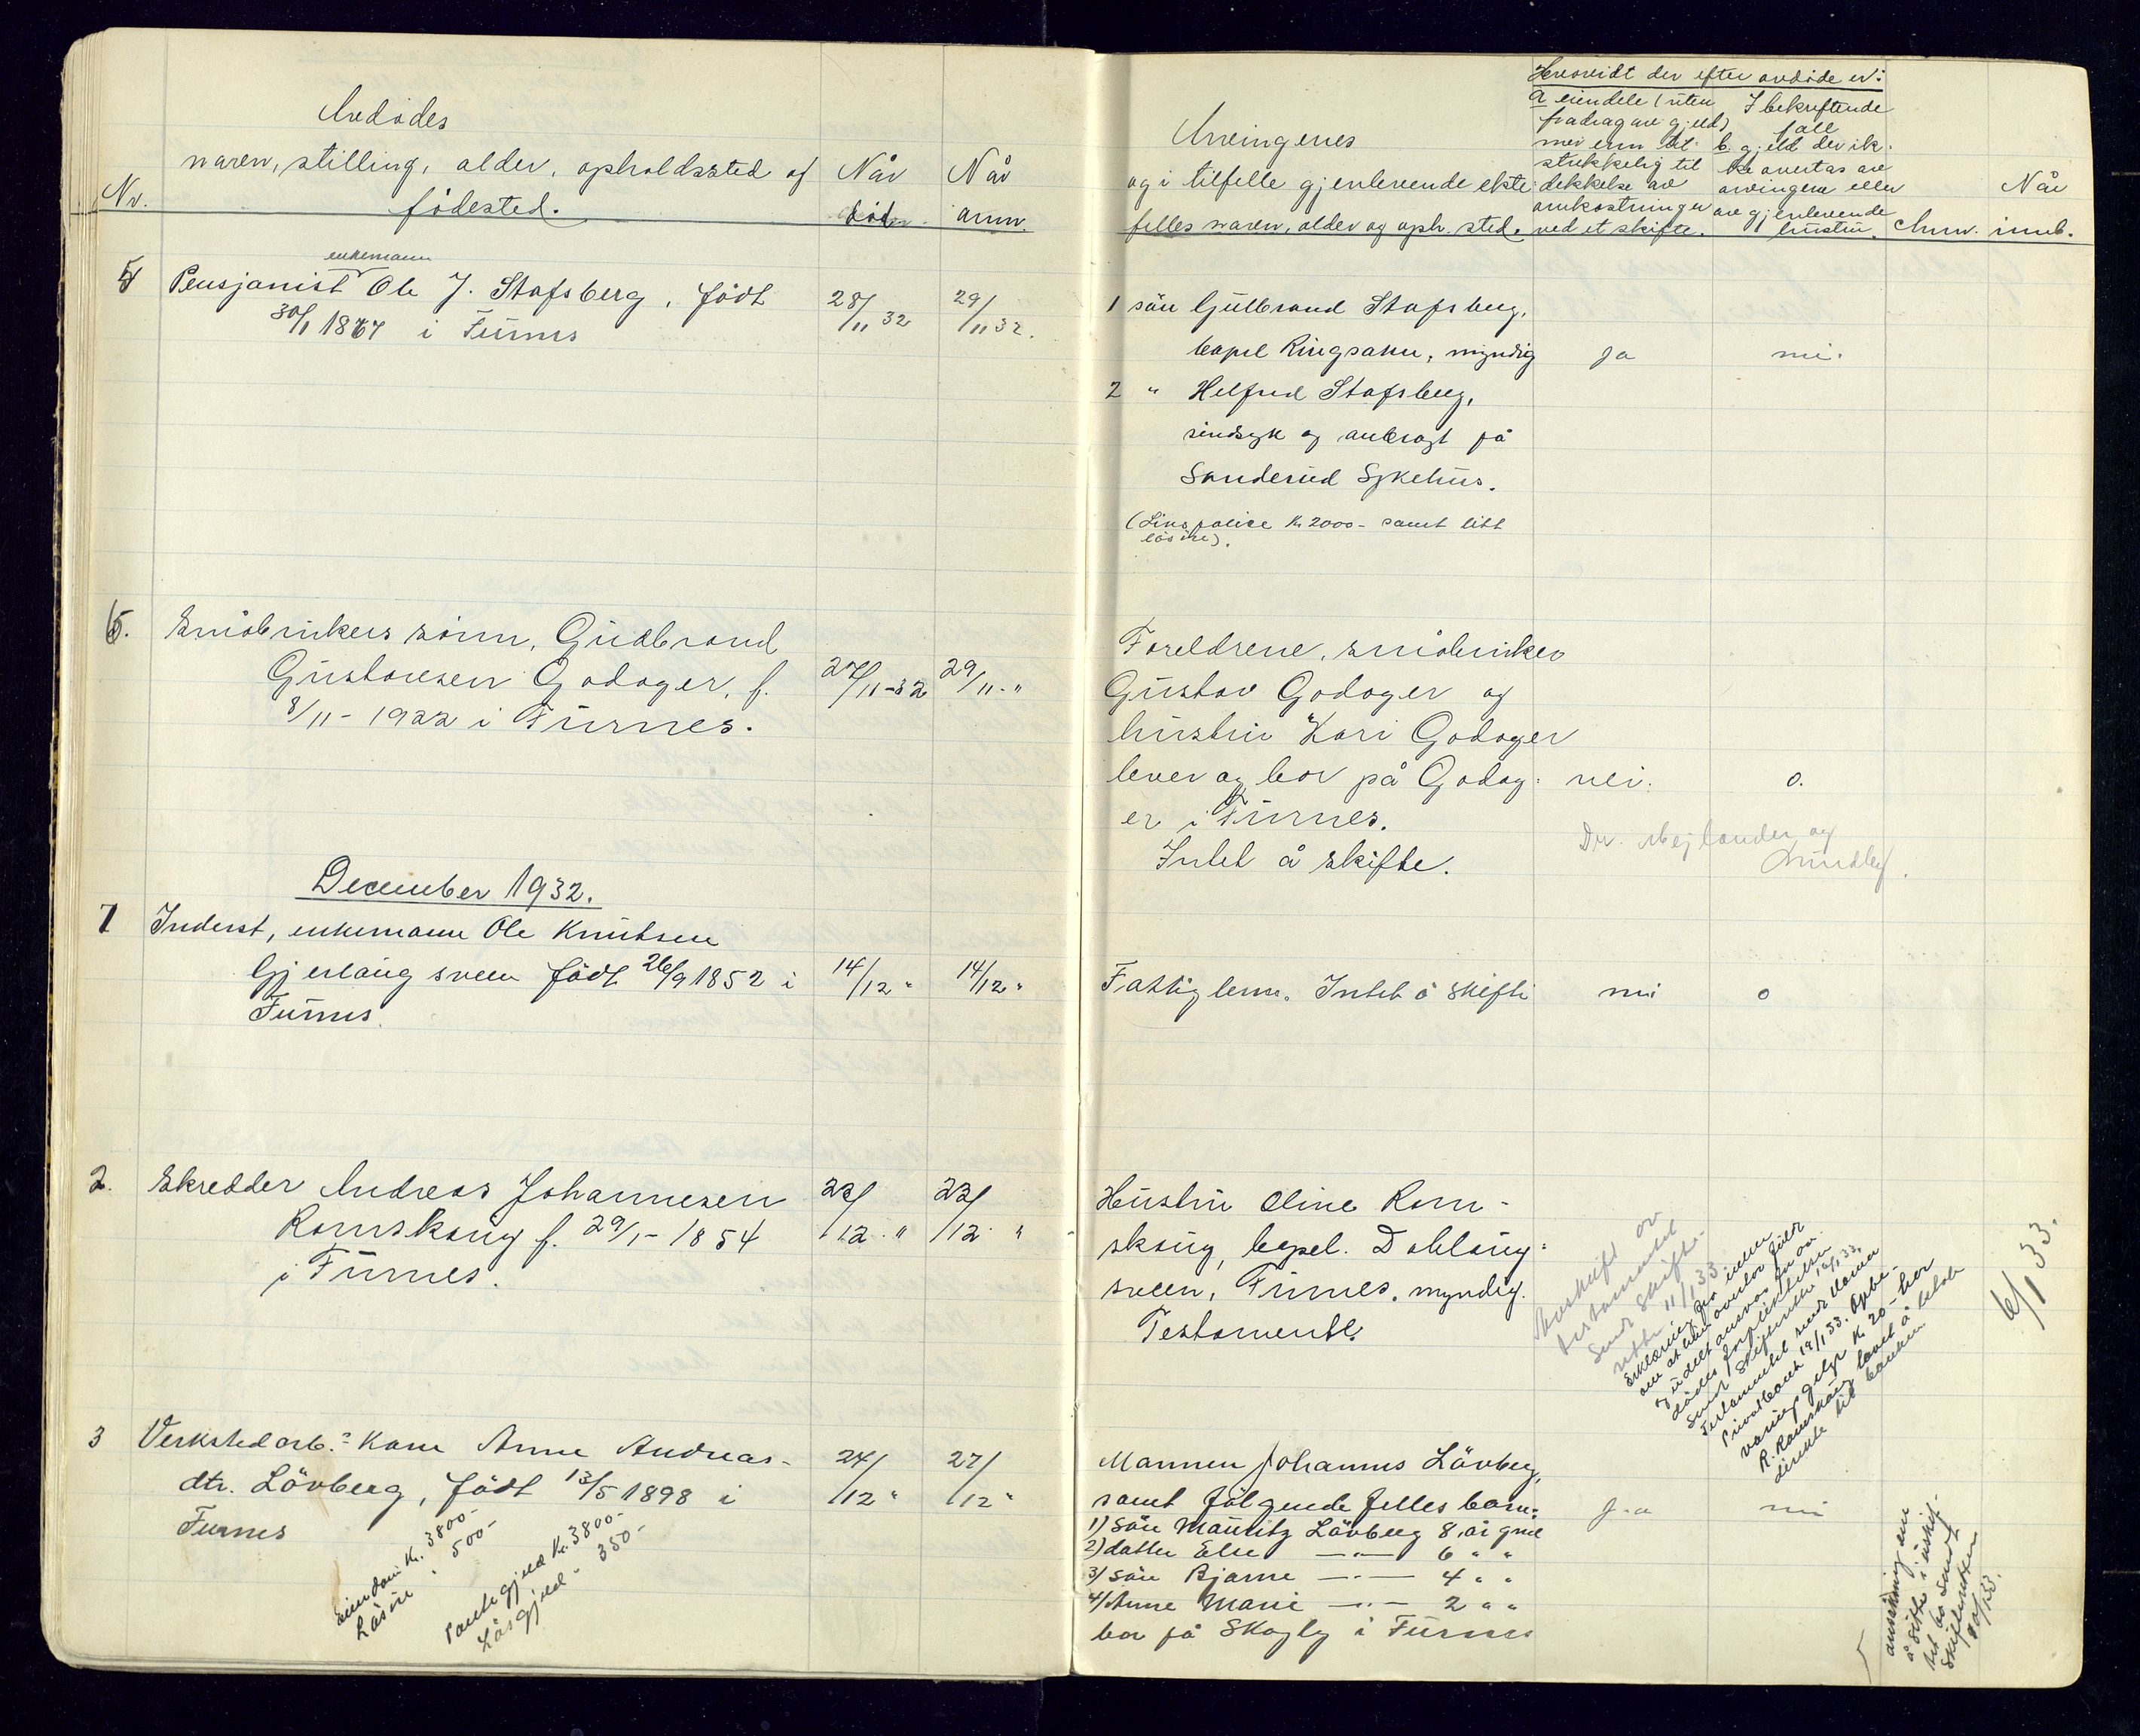 Avdødes
navn, stilling, alder, opholdssted og
Nr.
fødested.
Når
død
Når
anm.
Arvingenes
og i tilfelle gjenlevende ekte-
felles navn, alder og oph. sted.
Hvorvidt der efter avdøde er:
a eiendele (uten
fradrag av gjeld)
mer enn til-
strekkelig til
dekkelse av
omkostninger
ved et skifte.
I bekreftende
fall
b. gjeld der ik-
ke overtas av
arvingene eller
av gjenlevende
hustru.
Anm.
Når
innb.
5
enkemann
Pensjonist Ole J. Stafsberg, født
30/1 1867 i Furnes
28/11 32
29/11 32.
1 sön Gulbrand Stafsberg,
bopel Ringsaker, myndig
ja
nei.
2 " Helfred Stafsberg,
sindsyk og anbragt på
Sanderud Sykehus.
(Livspolice kr. 2000- samt litt
løsøre).
6.
Småbrukers sønn, Gudbrand
Gustavsen Godager, f.
8/11 - 1922 i Furnes.
27/11-32
29/11 - "
Foreldrene, småbruker
Gustav Godager og
hustru Kari Godager
lever og bor på Godag-
er i Furnes.
Intet å skifte.
nei.
0.
Dr. Mejlænder og
December 1932.
1
Inderst, enkemann Ole Knutsen
Gjerlaugsveen født 26/9 1852 i
Furnes.
14/12 "
14/12 "
Fattiglem. Intet å skifte
nei
0
2.
Skredder Andreas Johannesen
Romskoug f. 29/1 - 1854
i Furnes.
22/12. "
23/12. "
Hustru Oline Rom-
skoug, bopel. Dobloug-
sveen, Furnes, myndig.
Testamente.
Avskrift av
testamentet
sendt skifte-
retten 11/1 33
Erklæring fra enken
om at hun overtar fullt
og udelt ansvar for av-
dødes forpliktelser
sendt skifteretten 12/1 33.
Testamentet sendt Hamar
Privatbank 19/1 33. Opbe-
varingsgebyr kr. 20- har
R. Romskoug lovet å betale
direkte til banken.
6/1 33.
3
Verkstedarb.s Kone Anne Andreas-
dtr. Lövberg, født 13/5 1898 i
Furnes
24/12 "
27/12 "
eiendom Kr. 3800-
Løsøre " 500-
Pantegjeld Kr. 3800-
Løsgjeld - 350-
Mannen Johannes Lövberg,
samt følgende felles barn:
1) Sön Mauritz Lövberg 8 år gml
2) datter Else —"— 6 " "
3) sön Bjarne —"— 4 " "
4) Anne Marie —"— 2 " "
bor på Skogly i Furnes
Ja
nei
ansökning om
å sitte i uskif-
tet bo sendt
skifteretten
10/1 33.